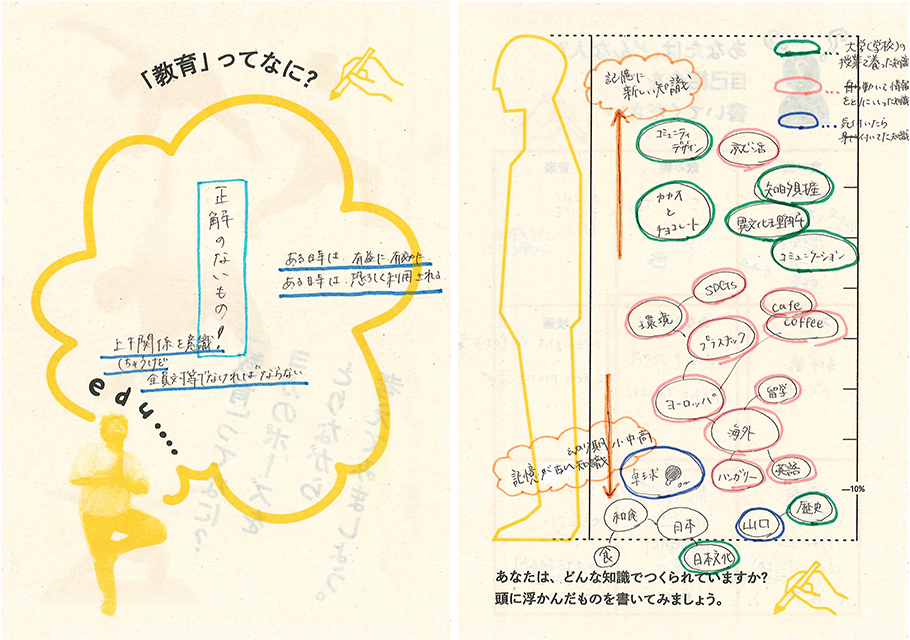 「教育」ってなに?
正解のないもの!
ある時は、有益に有効に
ある時は、恐ろしく利用される
上下関係を意識!
しちゃうけど
全員対等でなければならない
edu.....
大学(学校)の
授業で養った知識
自ら動いて情報
をとりにいった知識
気付いたら
身に付いてた知識
記憶に
新しい知識
コミュニティ
デザイン
就活
カカオ
と
チョコレート
知的財産
異文化理解
コミュニケーション
SDGs
環境
プラスチック
cafe
coffee
ヨーロッパ
留学
海外
ハンガリー
英語
幼少期 小中高
記憶がない知識
卓球
10%
和食
日本
食
日本文化
山口
歴史
あなたは、どんな知識でつくられていますか?
頭に浮かんだものを書いてみましょう。